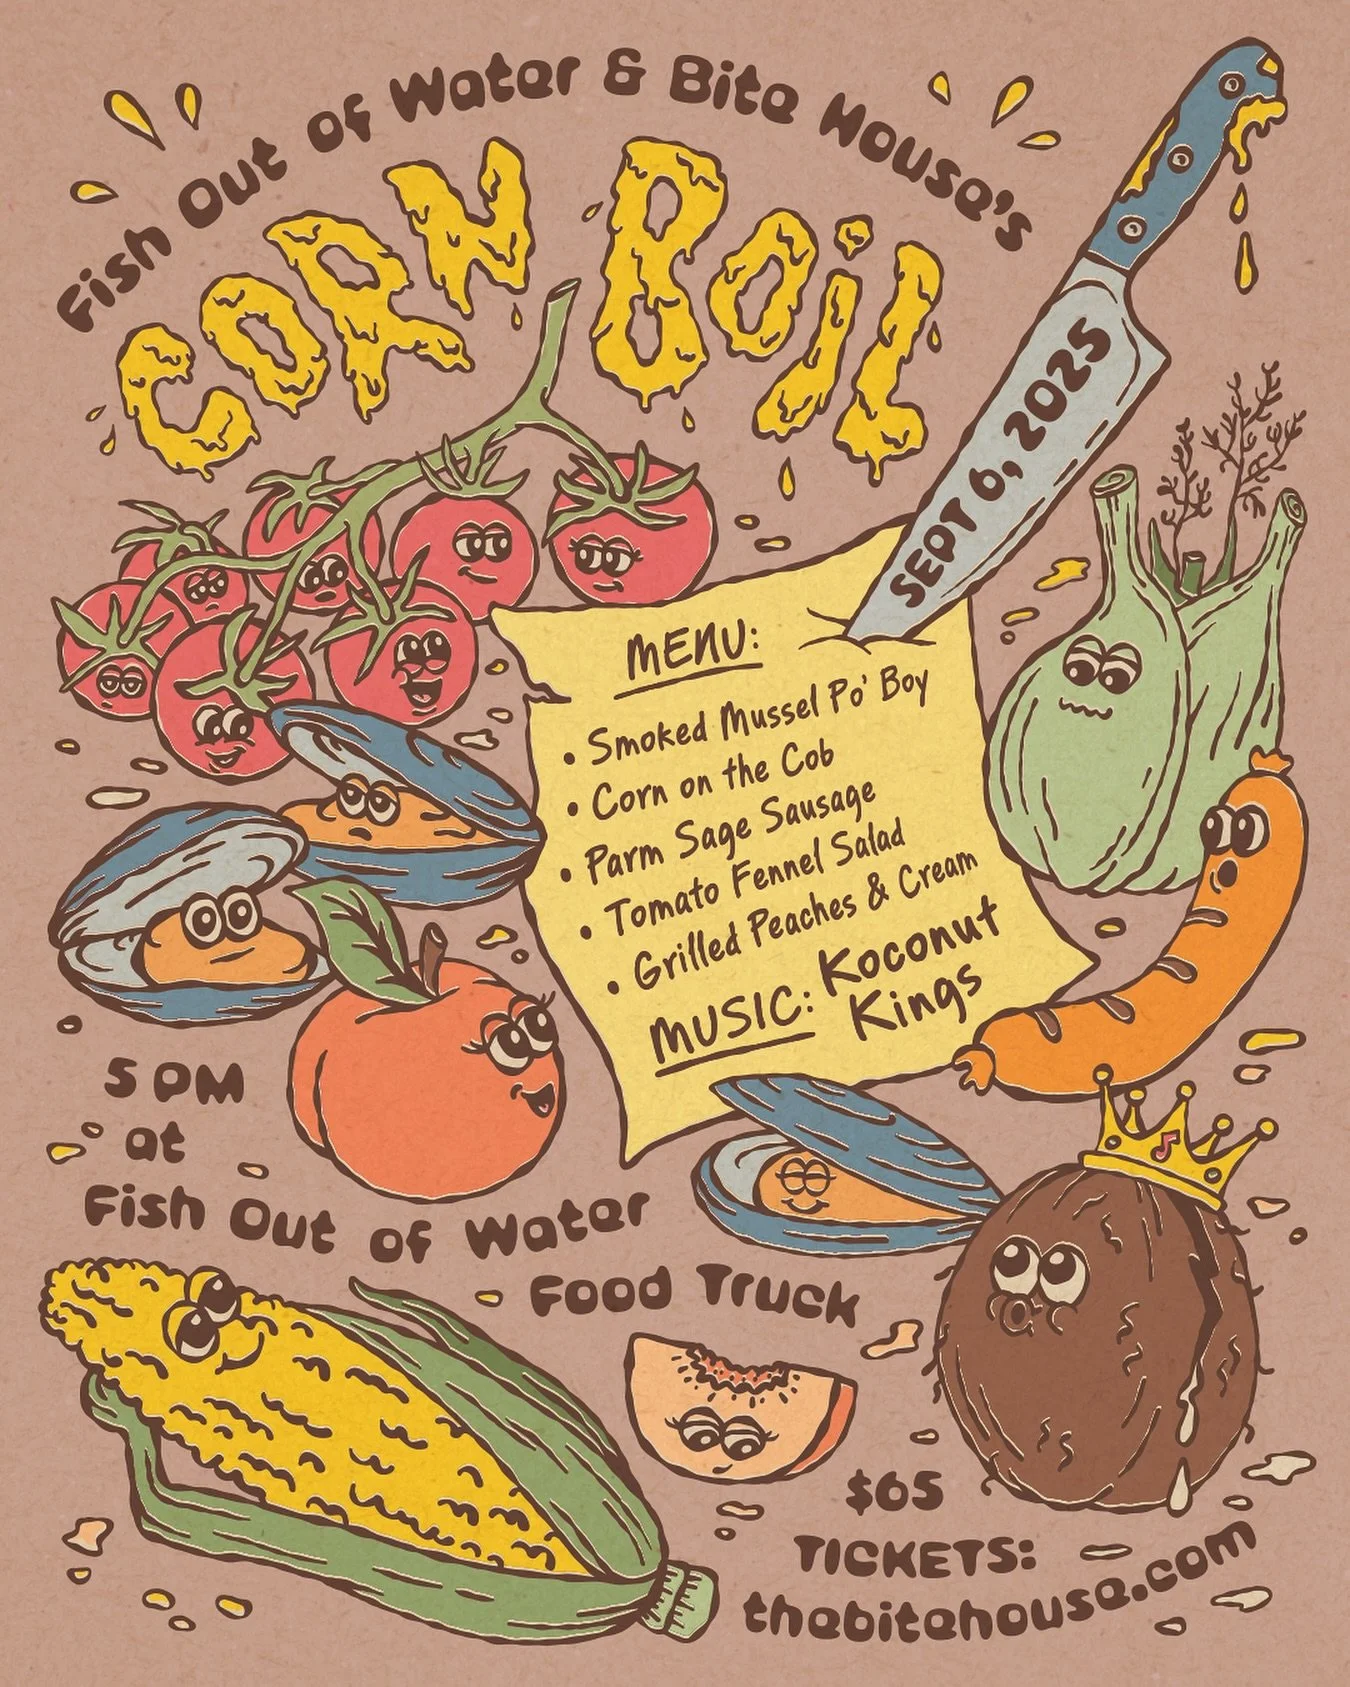 Fish Out of Water & Bite House's
CORN BOIL
SEPT 6, 2025
MENU:
• Smoked Mussel Po' Boy
• Corn on the Cob
• Parm Sage Sausage
• Tomato Fennel Salad
• Grilled Peaches & Cream
MUSIC: Koconut
Kings
5 PM
at
Fish Out of Water
Food Truck
$65
TICKETS:
thebitehouse.com